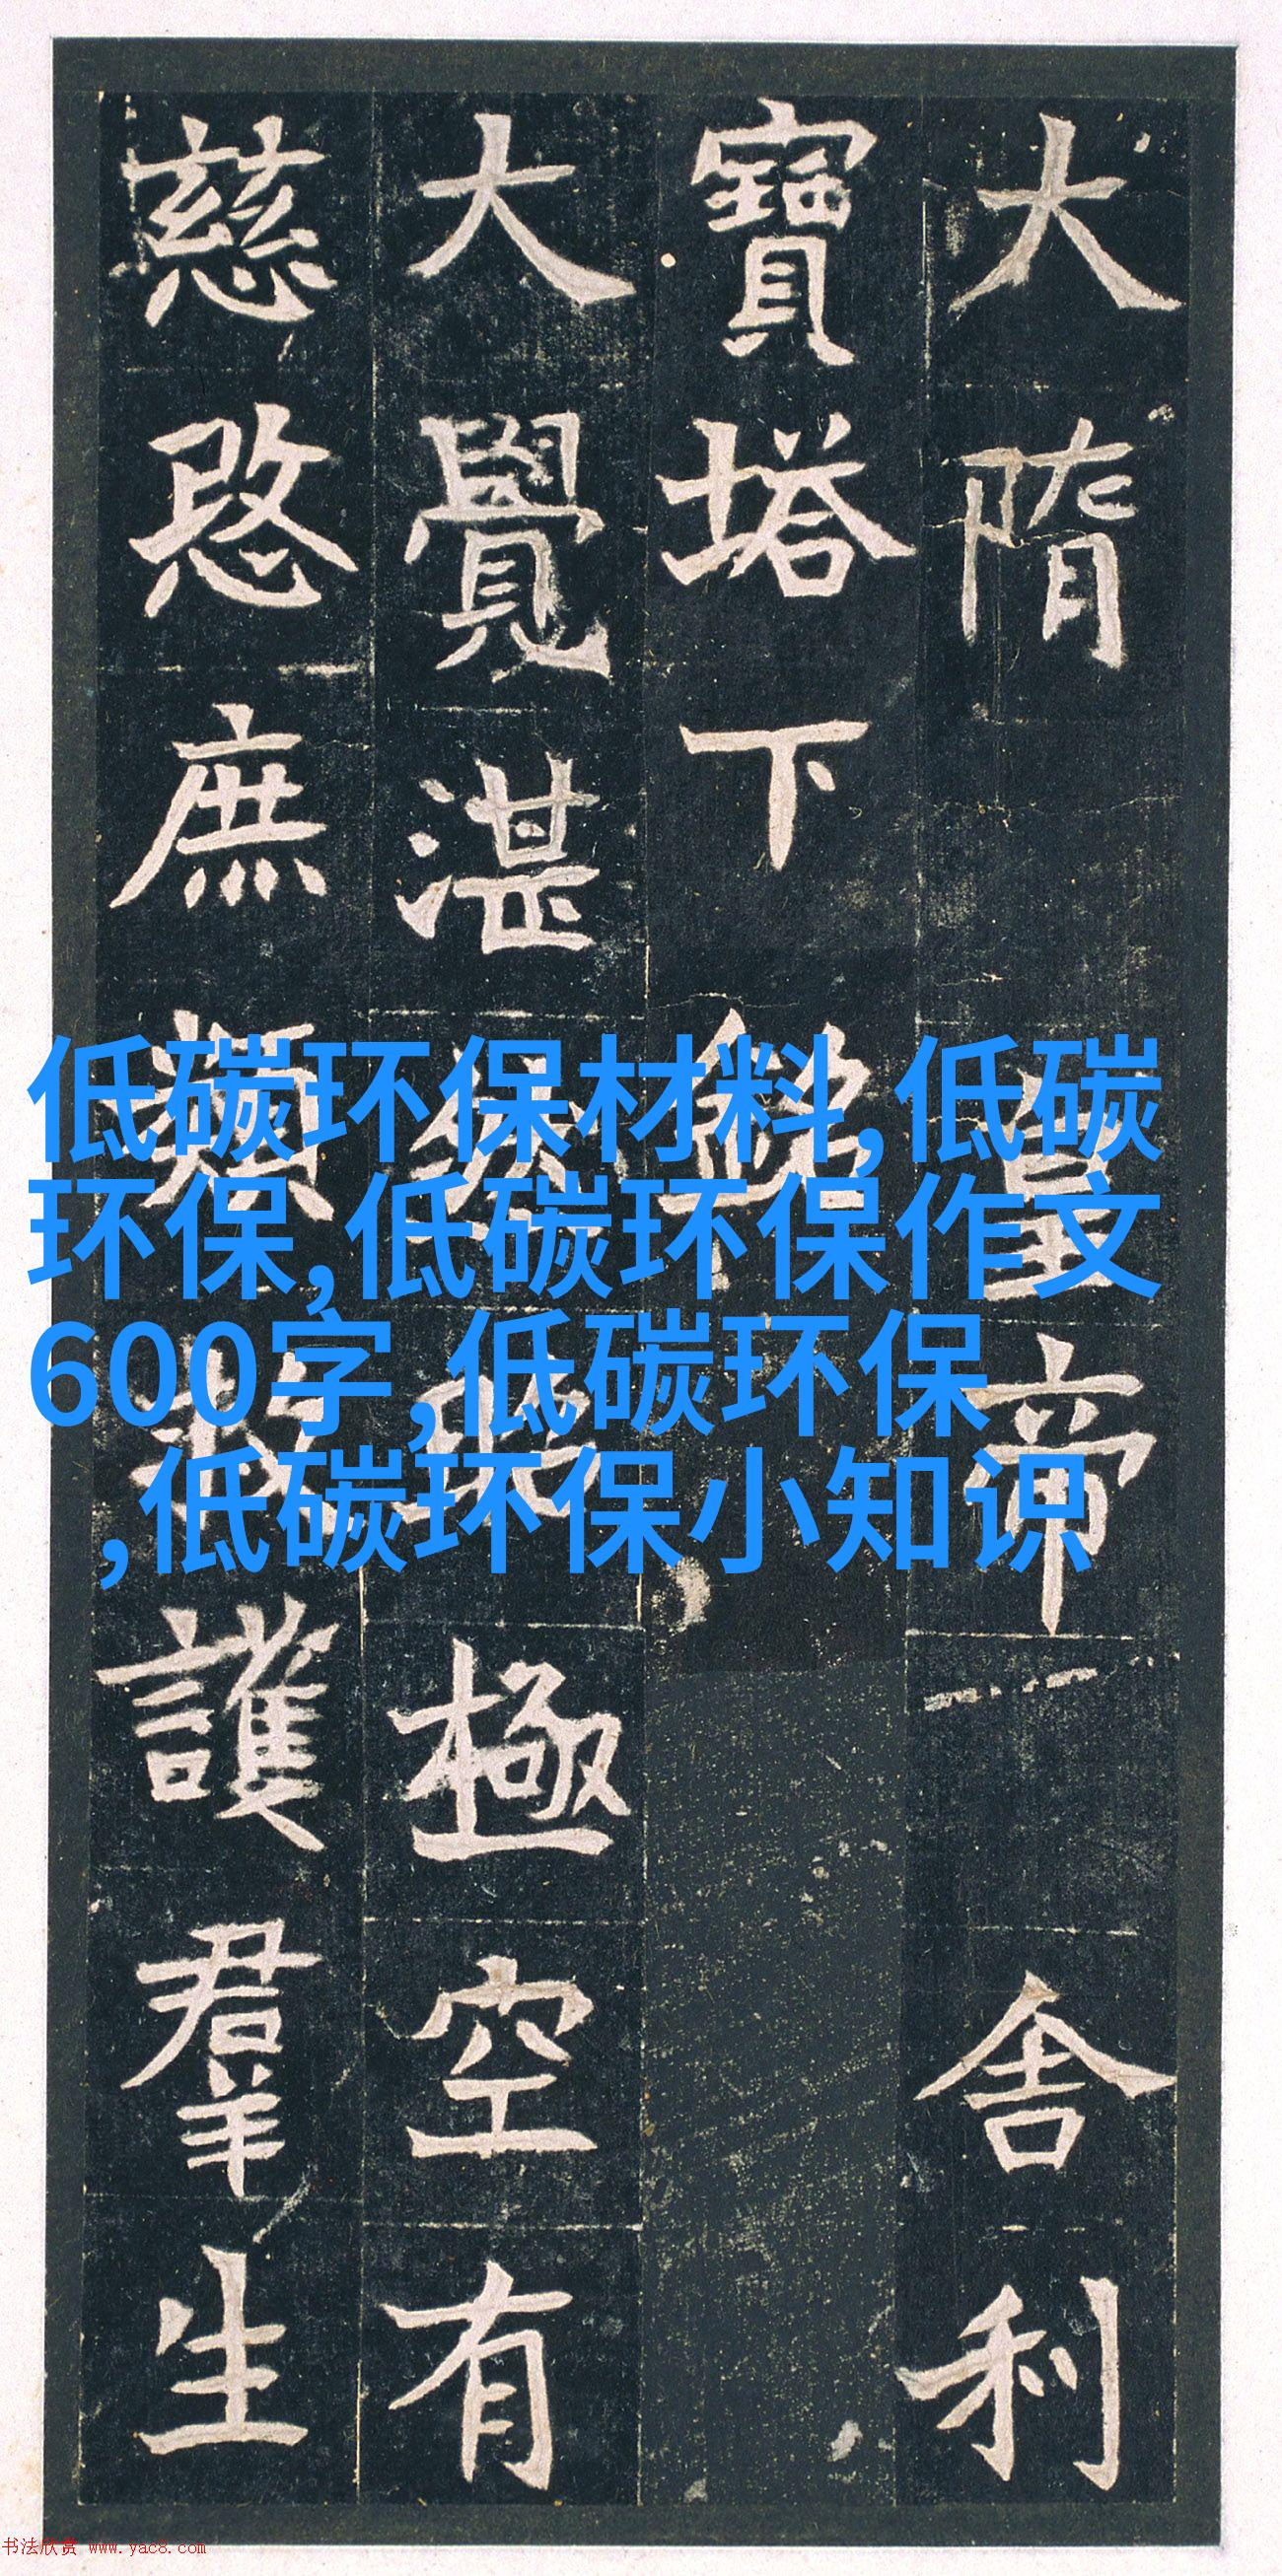 大隋皇帝舍利
寶塔下銘
大覺湛然昭極空有
慈愍庶類救護羣生
低碳环保材料,低碳
环保,低碳环保作文
600字,低碳环保
,低碳环保小知识
书法欣赏 www.yac8.com